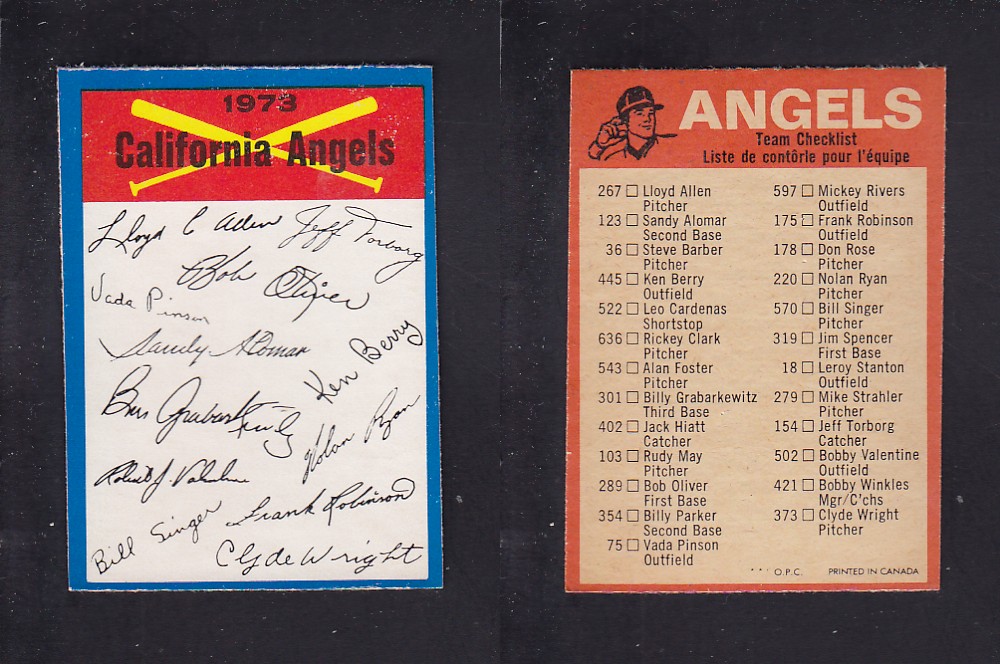 1973
California Angels
Lloyd C Allen
Jeff Torborg
Bob Oliver
Vada Pinson
Sandy Alomar
Ken Berry
Billy Grabarkewitz
Nolan Ryan
Robert J. Valentine
Frank Robinson
Bill Singer
Clyde Wright
ANGELS
Team Checklist
Liste de contôrle pour l'équipe
267 Lloyd Allen
Pitcher
123 Sandy Alomar
Second Base
36 Steve Barber
Pitcher
445 Ken Berry
Outfield
522 Leo Cardenas
Shortstop
636 Rickey Clark
Pitcher
543 Alan Foster
Pitcher
301 Billy Grabarkewitz
Third Base
402 Jack Hiatt
Catcher
103 Rudy May
Pitcher
289 Bob Oliver
First Base
354 Billy Parker
Second Base
75 Vada Pinson
Outfield
597 Mickey Rivers
Outfield
175 Frank Robinson
Outfield
178 Don Rose
Pitcher
220 Nolan Ryan
Pitcher
570 Bill Singer
Pitcher
319 Jim Spencer
First Base
18 Leroy Stanton
Outfield
279 Mike Strahler
Pitcher
154 Jeff Torborg
Catcher
502 Bobby Valentine
Outfield
421 Bobby Winkles
Mgr/C'chs
373 Clyde Wright
Pitcher
*** O.P.C. PRINTED IN CANADA